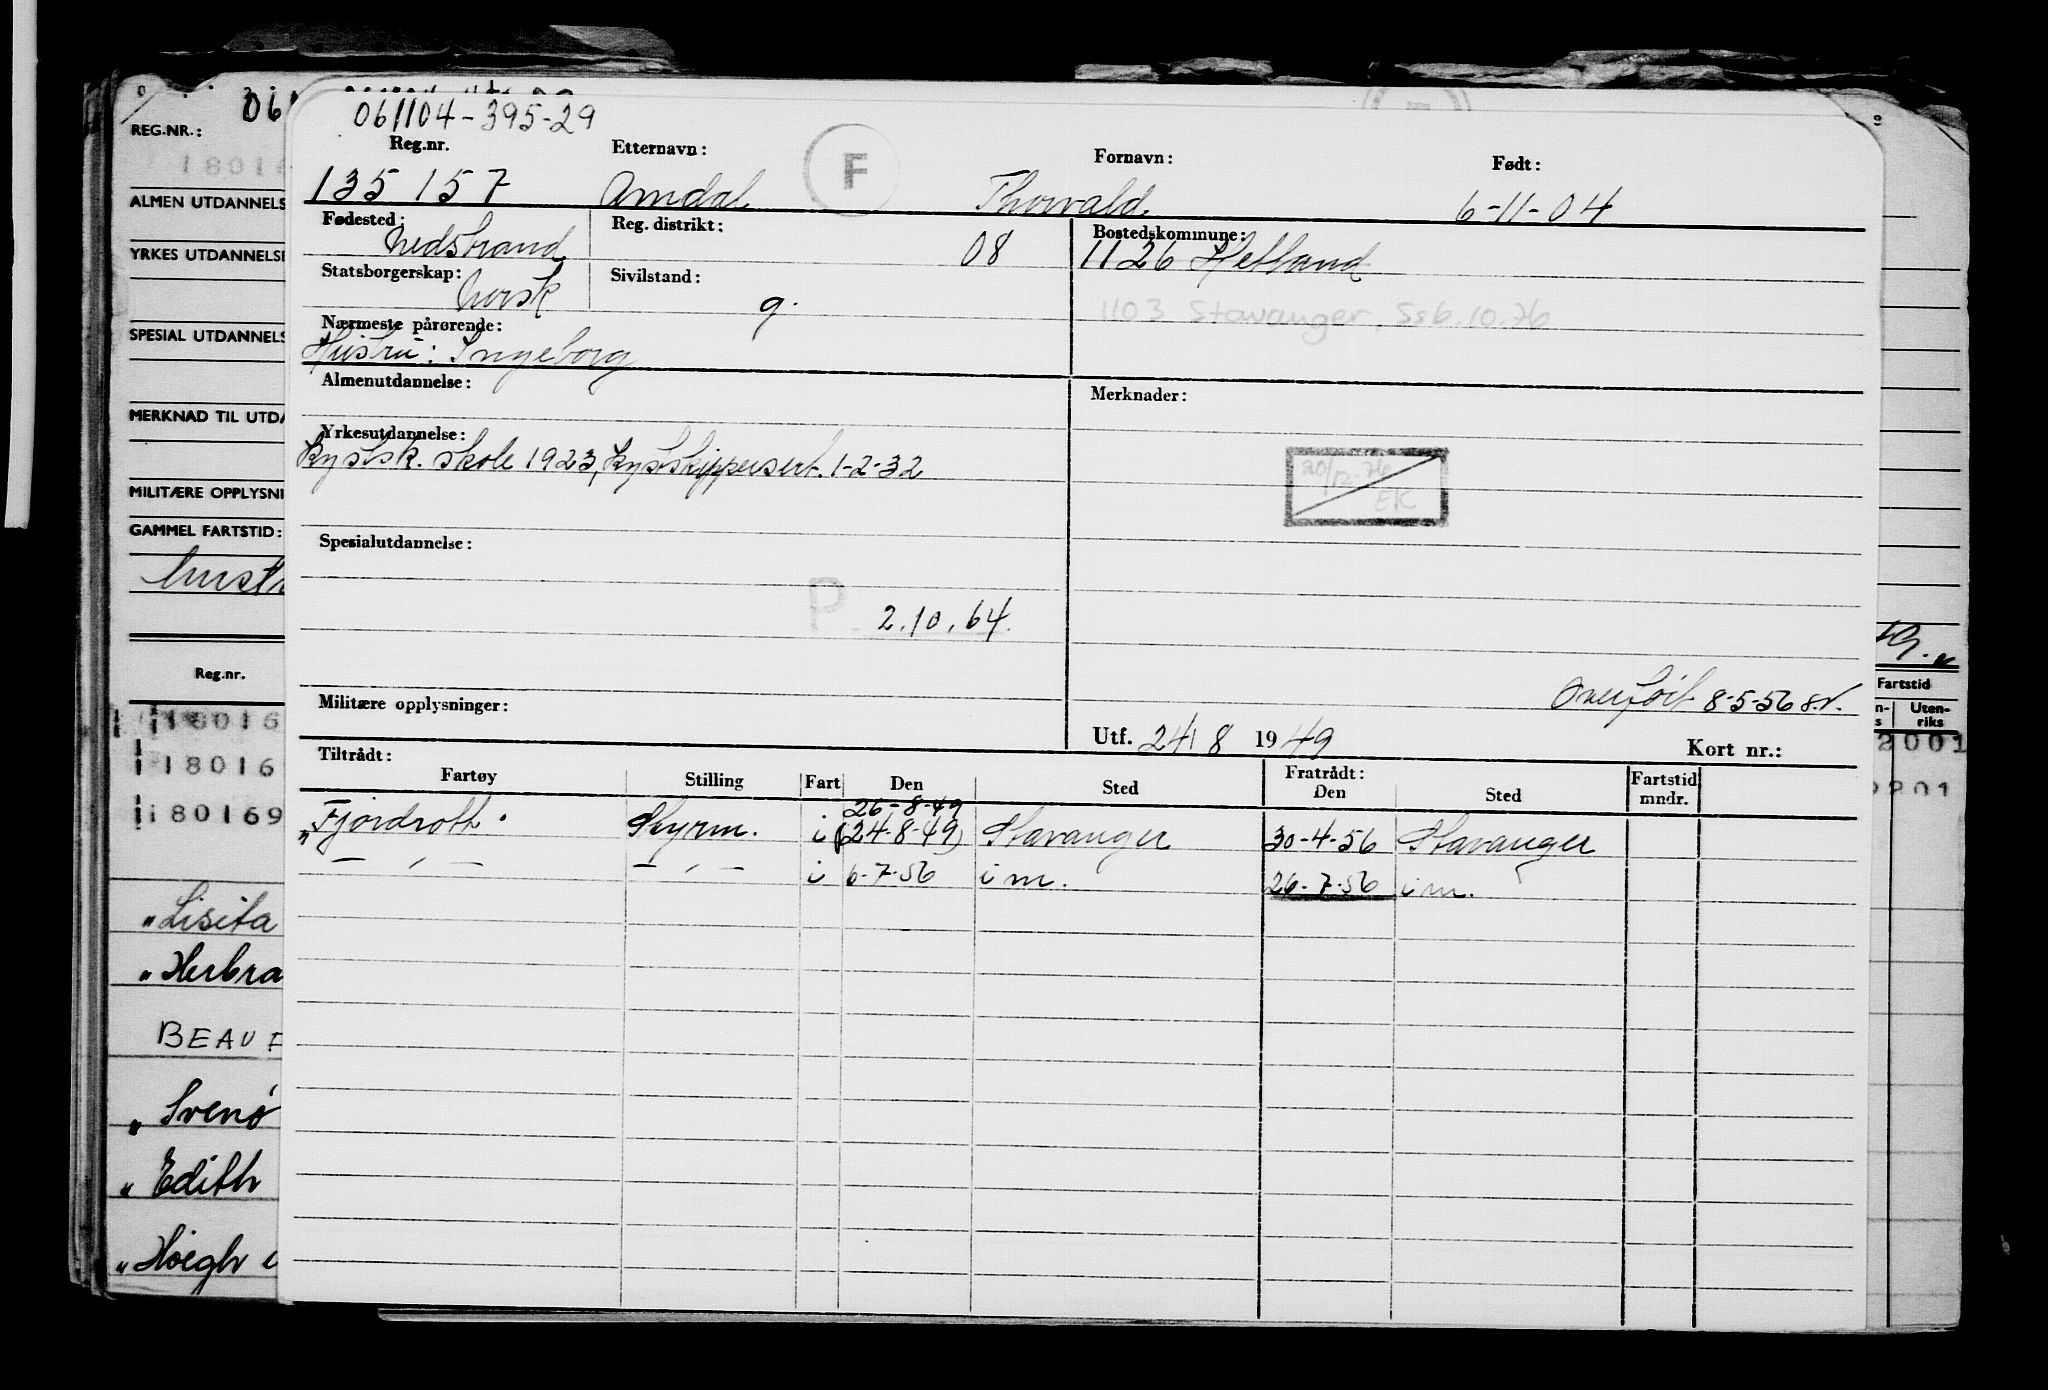 061104-395-29
Reg.nr. Etternavn: F Fornavn: Født:
135 157 Amdal Thorvald 6-11-04
Fødested: Nedstrand Reg. distrikt: 08 Bostedskommune: 1126 Hetland
Statsborgerskap: Norsk Sivilstand: g. 1103 Stavanger, Ssb. 10.76
Nærmeste pårørende:
Hustru: Ingeborg
Almenutdannelse: Merknader:
Yrkesutdannelse:
Kystsk. skole 1923, Kystskippersert. 1-2-32
20/12-76
EK
Spesialutdannelse:
P. 2.10.64.
Overført 8-5-56
Militære opplysninger:
Utf. 24/8 1949 Kort nr.:
Tiltrådt: Fratrådt:
Fartøy Stilling Fart Den Sted Den Sted Fartstid mndr.
26-8-49
"Fjordrott. Styrm. i (24-8-49) Stavanger 30-4-56 Stavanger
— , — — , — i 6-7-56 i m. 26-7-56 i m.
06
REG.NR.:
18016
ALMEN UTDANNELS
YRKES UTDANNELSE
SPESIAL UTDANNELS
MERKNAD TIL UTDA
MILITÆRE OPPLYSNI
GAMMEL FARTSTID:
Reg.nr.
18016
18016
180169
"Lisita
"Herbra
BEAU
"Svenø
"Edith
"Høegh
Fartstid
Uten-
riks
2001